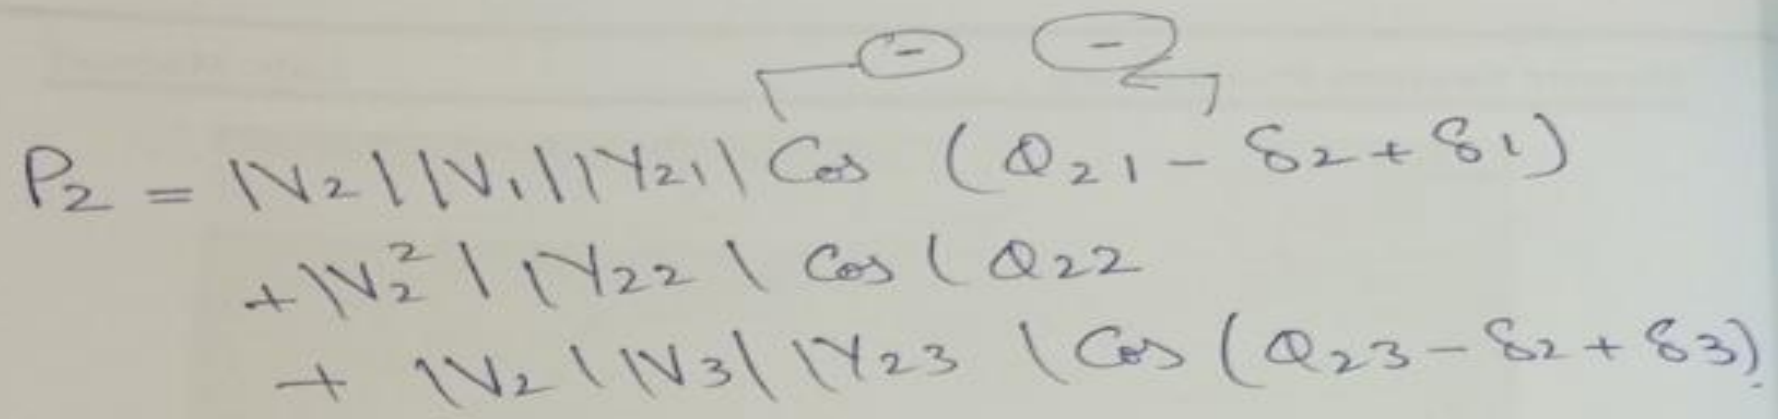 - -
P2 = |V2||V1||Y21| Cos (Q21 - δ2 + δ1)
+|V2²||Y22| Cos (Q22
+ |V2||V3||Y23| Cos (Q23 - δ2 + δ3)